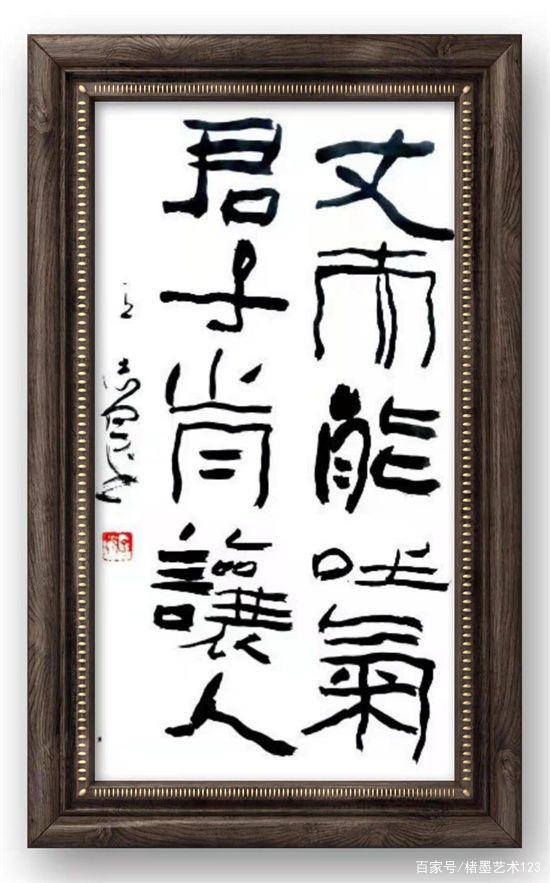 丈夫能吐氣
君子尚讓人
百家号/楮墨艺术123